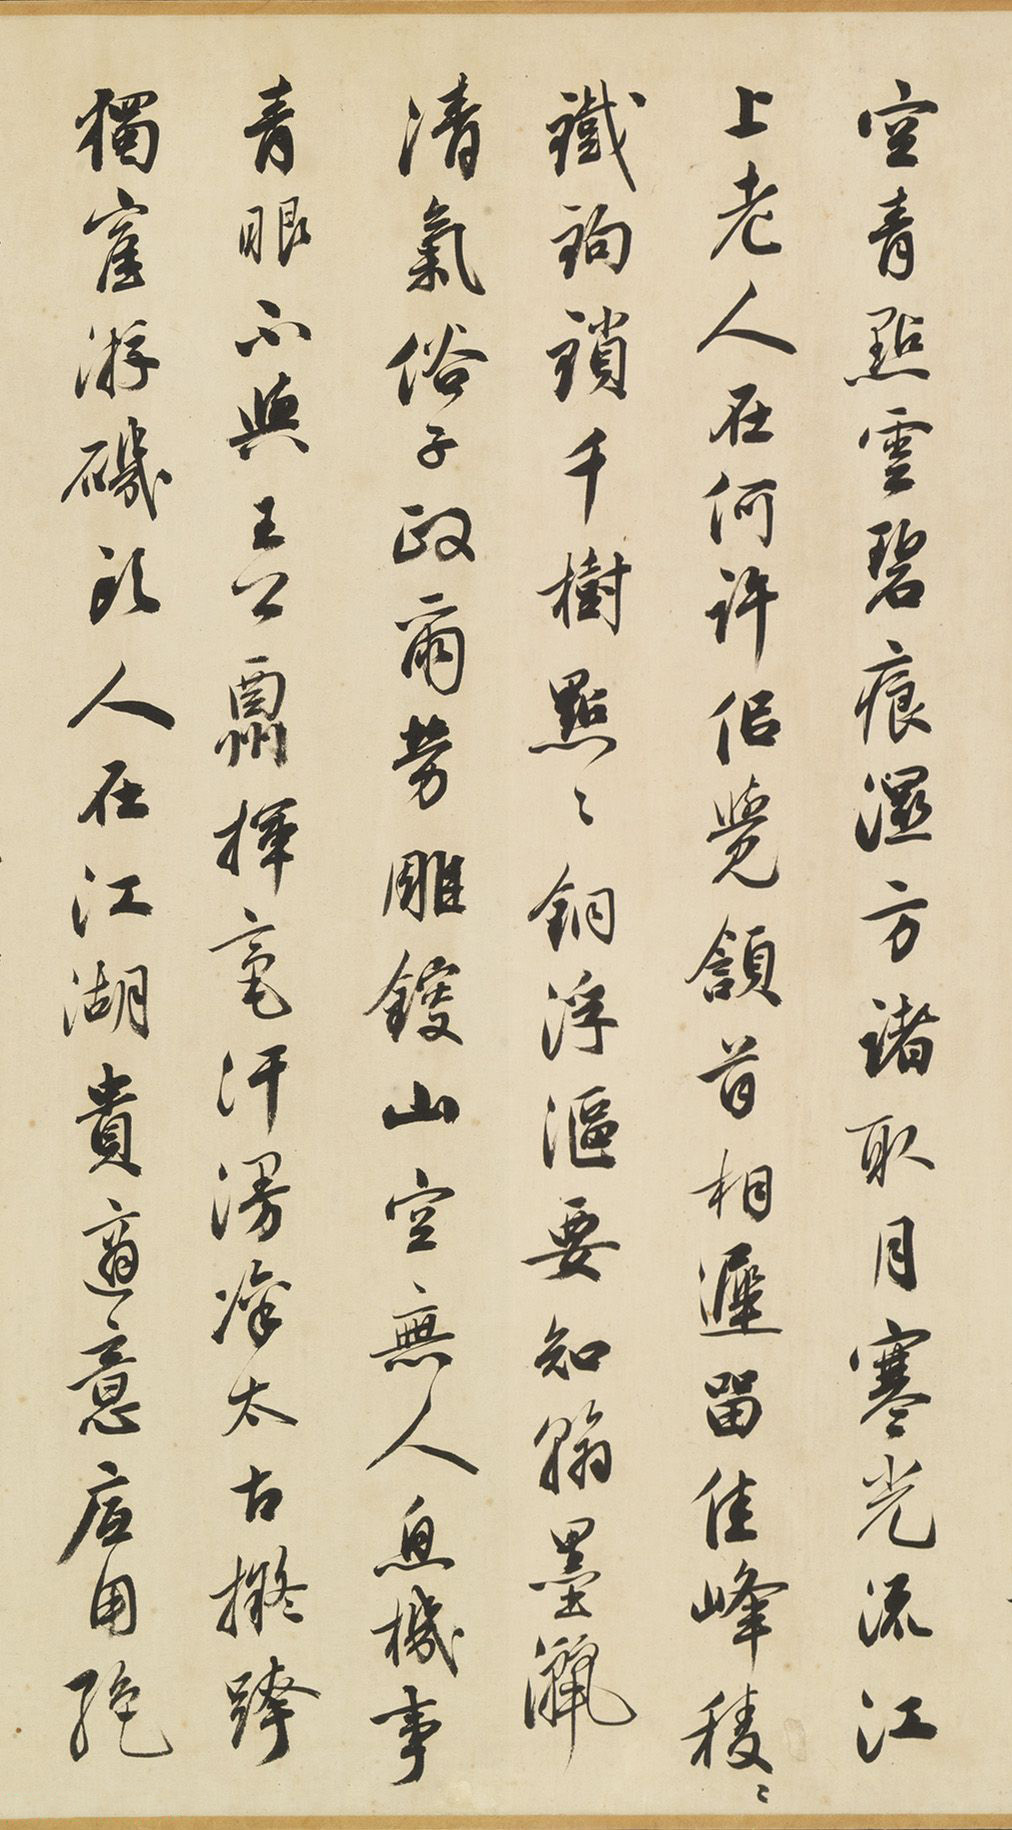 空青點雲碧痕濕方諸取月寒光流江
上老人在何許但覺頷首相遲留佳峰稜〻
鐵鉤鎖千樹點〻銅浮漚要知翰墨
清氣俗子政爾勞雕鎪山空無人息機事
青眼不與王公酬揮毫汗漫凌太古擬跨
獨寉游磯頭人在江湖貴適意應用絕